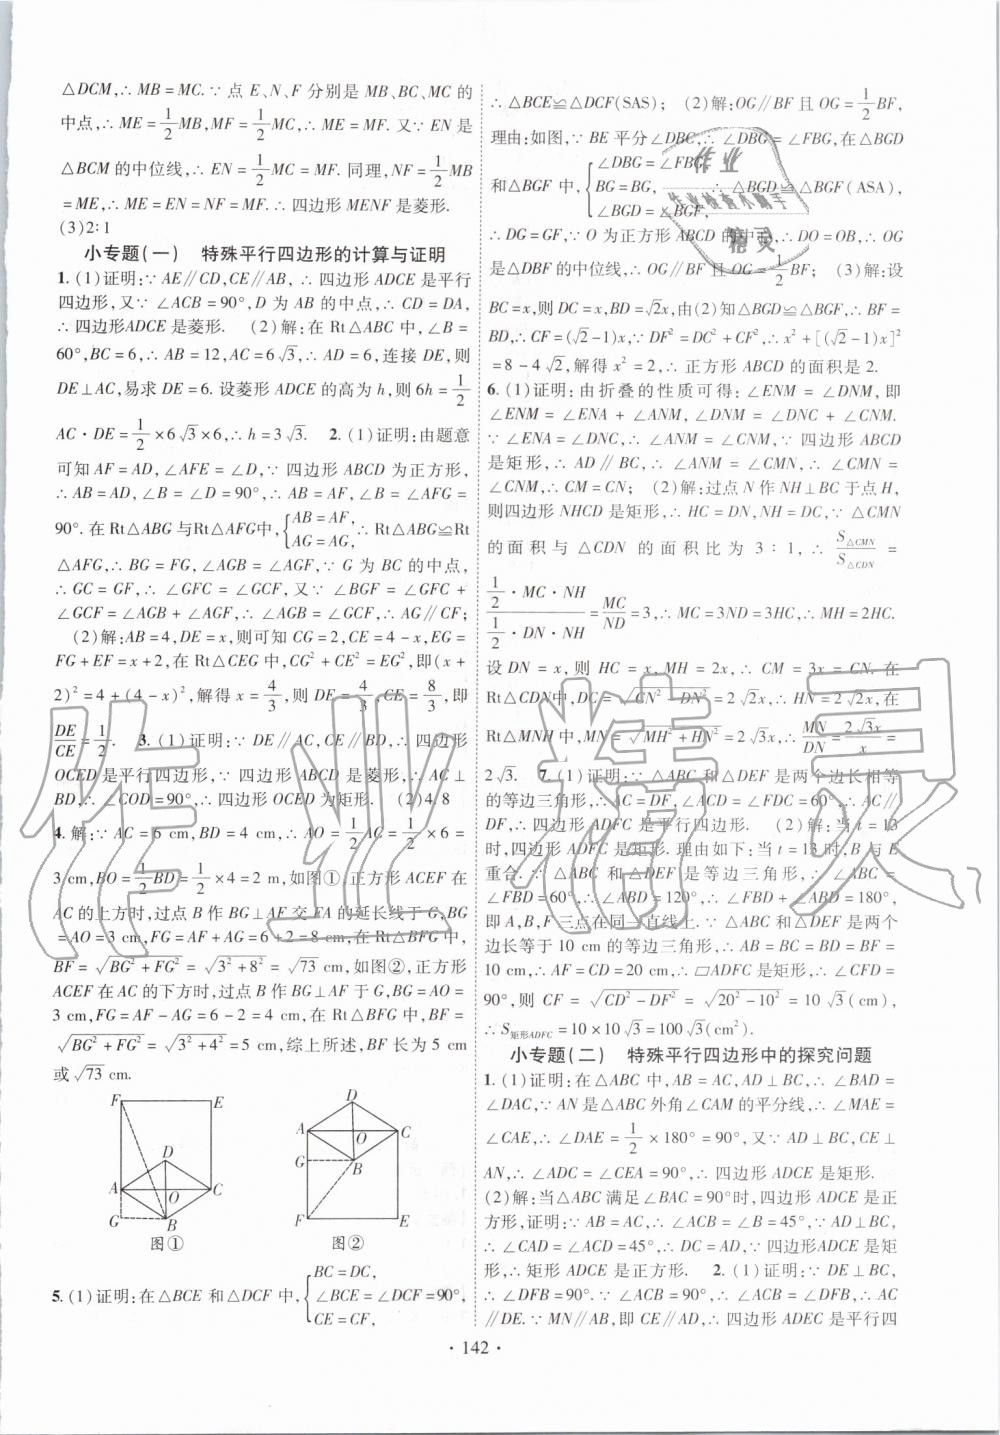 △DCM,∴MB=MC.∵点 E、N、F 分别是 MB、BC、MC 的
中点,∴ME=1/2MB,MF=1/2MC,∴ME=MF.又∵EN 是
△BCM 的中位线,∴EN=1/2MC=MF.同理,NF=1/2MB
=ME,∴ME=EN=NF=MF.∴四边形 MENF 是菱形.
(3)2∶1
小专题(一) 特殊平行四边形的计算与证明
1.(1)证明:∵AE∥CD,CE∥AB,∴四边形 ADCE 是平行
四边形,又∵∠ACB=90°,D 为 AB 的中点,∴CD=DA,
∴四边形ADCE 是菱形. (2)解:在 Rt△ABC 中,∠B=
60°,BC=6,∴AB=12,AC=6√3,∴AD=6,连接 DE,则
DE⊥AC,易求 DE=6.设菱形 ADCE 的高为 h,则6h=1/2
AC·DE=1/2×6√3×6,∴h=3√3. 2.(1)证明:由题意
可知 AF=AD,∠AFE=∠D,∵四边形 ABCD 为正方形,
∴AB=AD,∠B=∠D=90°,∴AB=AF,∠B=∠AFG=
90°.在 Rt△ABG 与Rt△AFG中,{AB=AF, AG=AG,∴Rt△ABG≌Rt
△AFG,∴BG=FG,∠AGB=∠AGF,∵G 为 BC 的中点,
∴GC=GF,∴∠GFC=∠GCF,又∵∠BGF=∠GFC+
∠GCF=∠AGB+∠AGF,∴∠AGB=∠GCF,∴AG∥CF;
(2)解:AB=4,DE=x,则可知 CG=2,CE=4-x,EG=
FG+EF=x+2,在 Rt△CEG 中,CG²+CE²=EG²,即(x+
2)²=4+(4-x)²,解得 x=4/3,则 DE=4/3,CE=8/3,即
DE/CE=1/2. 3.(1)证明:∵DE∥AC,CE∥BD,∴四边形
OCED 是平行四边形,∵四边形 ABCD 是菱形,∴AC⊥
BD,∴∠COD=90°,∴四边形 OCED 为矩形. (2)4 8
4.解:∵AC=6 cm,BD=4 cm,∴AO=1/2AC=1/2×6=
3 cm,BO=1/2BD=1/2×4=2 m,如图①,正方形 ACEF 在
AC 的上方时,过点 B 作 BG⊥AF 交 FA 的延长线于 G,BG
=AO=3 cm,FG=AF+AG=6+2=8 cm,在 Rt△BFG 中,
BF=√(BG²+FG²)=√(3²+8²)=√73 cm,如图②,正方形
ACEF 在 AC 的下方时,过点 B 作 BG⊥AF 于 G,BG=AO=
3 cm,FG=AF-AG=6-2=4 cm,在 Rt△BFG 中,BF=
√(BG²+FG²)=√(3²+4²)=5 cm,综上所述,BF 长为 5 cm
或√73 cm.
F E D A O C G B
图①
D A O C G B F E
图②
5.(1)证明:在△BCE 和△DCF 中,{BC=DC, ∠BCE=∠DCF=90°, CE=CF,
∴△BCE≌△DCF(SAS); (2)解:OG∥BF 且 OG=1/2BF,
理由:如图,∵BE 平分∠DBC,∴∠DBG=∠FBG,在△BGD
和△BGF 中,{∠DBG=∠FBG, BG=BG, ∠BGD=∠BGF, ∴△BGD≌△BGF(ASA),
∴DG=GF,∵O 为正方形 ABCD 的中心,∴DO=OB,∴OG
是△DBF 的中位线,∴OG∥BF 且 OG=1/2BF; (3)解:设
BC=x,则 DC=x,BD=√2x,由(2)知△BGD≌△BGF,∴BF=
BD,∴CF=(√2-1)x,∵DF²=DC²+CF²,∴x²+[(√2-1)x]²
=8-4√2,解得 x²=2,∴正方形 ABCD 的面积是 2.
6.(1)证明:由折叠的性质可得:∠ENM=∠DNM,即
∠ENM=∠ENA+∠ANM,∠DNM=∠DNC+∠CNM.
∵∠ENA=∠DNC,∴∠ANM=∠CNM,∵四边形 ABCD
是矩形,∴AD∥BC,∴∠ANM=∠CMN,∴∠CMN=
∠CNM,∴CM=CN; (2)解:过点 N 作 NH⊥BC 于点 H,
则四边形 NHCD 是矩形,∴HC=DN,NH=DC,∵△CMN
的面积与△CDN 的面积比为 3∶1,∴S△CMN/S△CDN=
(1/2·MC·NH)/(1/2·DN·NH)=MC/ND=3,∴MC=3ND=3HC,∴MH=2HC.
设 DN=x,则 HC=x,MH=2x,∴CM=3x=CN.在
Rt△CDN中,DC=√(CN²-DN²)=2√2x,∴HN=2√2x,在
Rt△MNH 中,MN=√(MH²+HN²)=2√3x,∴MN/DN=2√3x/x=
2√3. 7.(1)证明:∵△ABC 和△DEF 是两个边长相等
的等边三角形,∴AC=DF,∠ACD=∠FDC=60°,∴AC∥
DF,∴四边形 ADFC 是平行四边形. (2)解:当 t=13
时,四边形 ADFC 是矩形.理由如下:当 t=13 时,B 与 E
重合.∵△ABC 和△DEF 是等边三角形,∴∠ABC=
∠FBD=60°,∴∠ABD=120°,∴∠FBD+∠ABD=180°,
即A,B,F 三点在同一直线上.∵△ABC 和△DEF 是两个
边长等于 10 cm 的等边三角形,∴AB=BC=BD=BF=
10 cm,∴AF=CD=20 cm,∴▱ADFC 是矩形,∴∠CFD=
90°,则 CF=√(CD²-DF²)=√(20²-10²)=10√3(cm),
∴S矩形ADFC=10×10√3=100√3(cm²).
小专题(二) 特殊平行四边形中的探究问题
1.(1)证明:在△ABC 中,AB=AC,AD⊥BC,∴∠BAD=
∠DAC,∵AN 是△ABC 外角∠CAM 的平分线,∴∠MAE=
∠CAE,∴∠DAE=1/2×180°=90°,又∵AD⊥BC,CE⊥
AN,∴∠ADC=∠CEA=90°,∴四边形 ADCE 是矩形.
(2)解:当△ABC 满足∠BAC=90°时,四边形 ADCE 是正
方形,证明:∵AB=AC,∴∠ACB=∠B=45°,∵AD⊥BC,
∴∠CAD=∠ACD=45°,∴DC=AD,∵四边形ADCE 是矩
形,∴矩形 ADCE 是正方形. 2.(1)证明:∵DE⊥BC,
∴∠DFB=90°,∵∠ACB=90°,∴∠ACB=∠DFB,∴AC
∥DE.∵MN∥AB,即 CE∥AD,∴四边形 ADEC 是平行四
·142·
作业
作业检查小助手
精灵
作业精灵